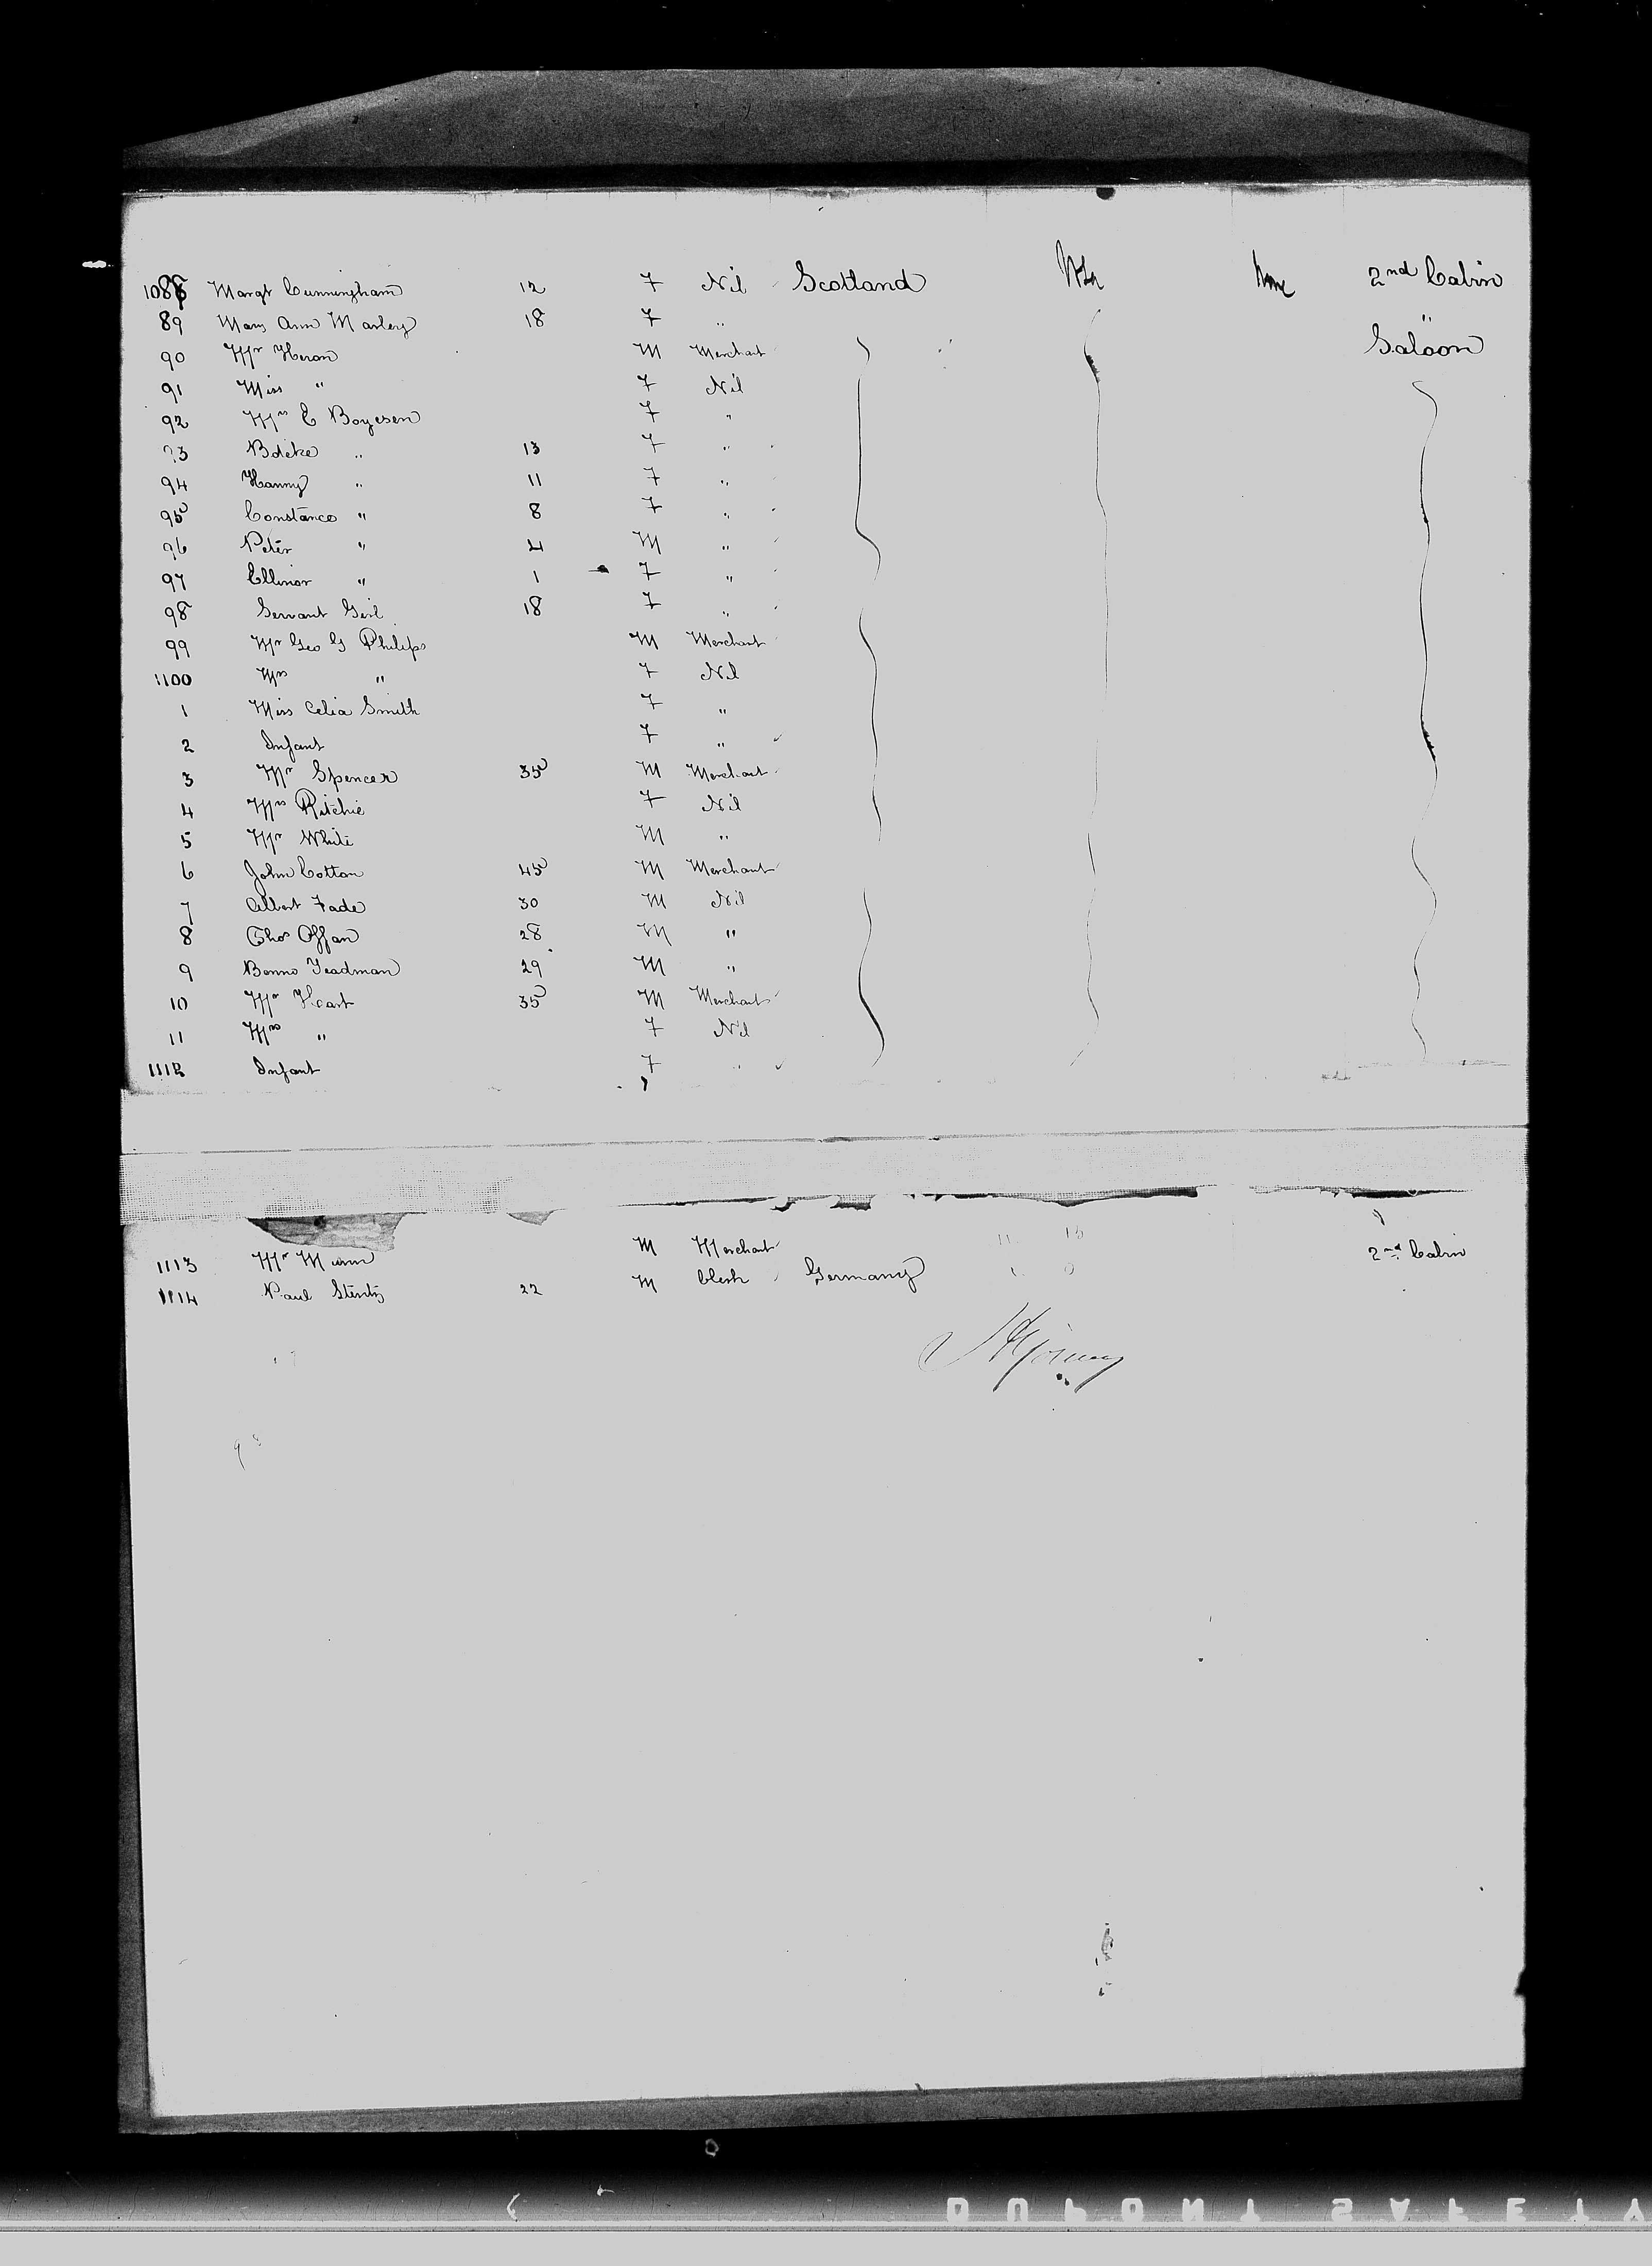 1088 Margt Cunningham 12 F Nil Scotland 2nd Cabin
89 Mary Ann Marley 18 F " "
90 Mr Heron M Merchant Saloon
91 Miss " F Nil
92 Mrs E Boyesen F "
93 " 13 F "
94 Hanny " 11 F "
95 Constance " 8 F "
96 Peter " 4 M "
97 Ellinor " 1 F "
98 Servant Girl 18 F "
99 Mr Geo G Philips M Merchant
1100 Mrs " F Nil
1 Miss Celia Smith F "
2 Infant F "
3 Mr Spencer 35 M Merchant
4 Mrs Ritchie F Nil
5 Mr White M "
6 John Cotton 45 M Merchant
7 Albert Fade 30 M Nil
8 Thos Offan 28 M "
9 Benno Yeadman 29 M "
10 Mr Heart 35 M Merchant
11 Mrs " F Nil
1112 Infant F "
1113 Mr Munn M Merchant 2nd Cabin
1114 Paul Stentz 22 M Clerk Germany
DUPONT SAFETY